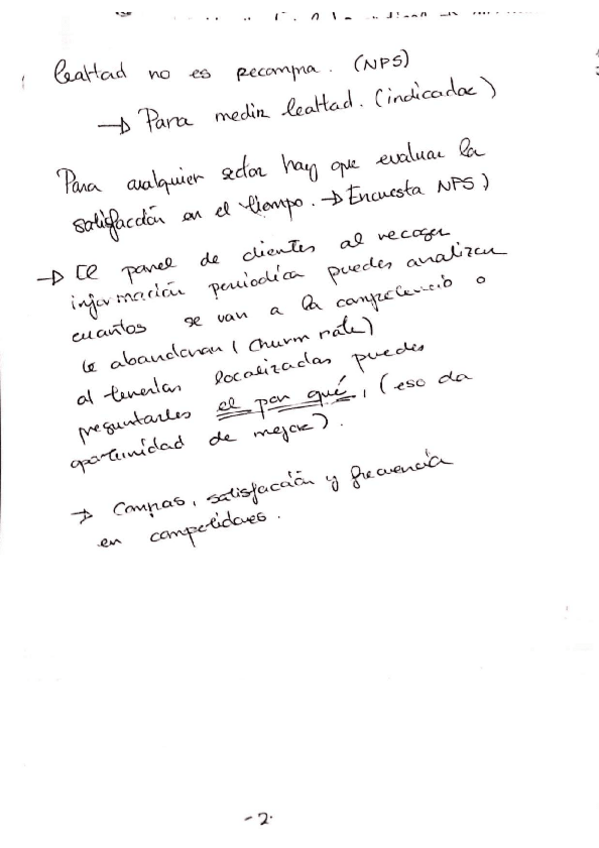 lealtad no es recompra. (NPS)
→ Para medir lealtad. (indicador)
Para cualquier sector hay que evaluar la
satisfacción en el tiempo. → Encuesta NPS)
→ El panel de clientes al recoger
información periodica puedes analizar
cuantos se van a la competencia o
te abandonan (churm rate)
al tenerlas localizadas puedes
preguntarles el por qué, (eso da
oportunidad de mejora).
→ Compras, satisfacción y frecuencia
en competidores.
-2.